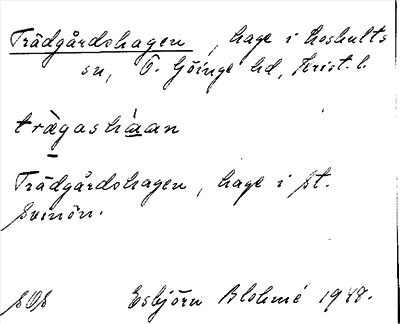 Trädgårdshagen, hage i Loshults
sn, Ö. Göinge hd, Krist. l.
trägashàan
Trädgårdshagen, hage i St.
Svinön.
SOS Esbjörn Blohmé 1948.